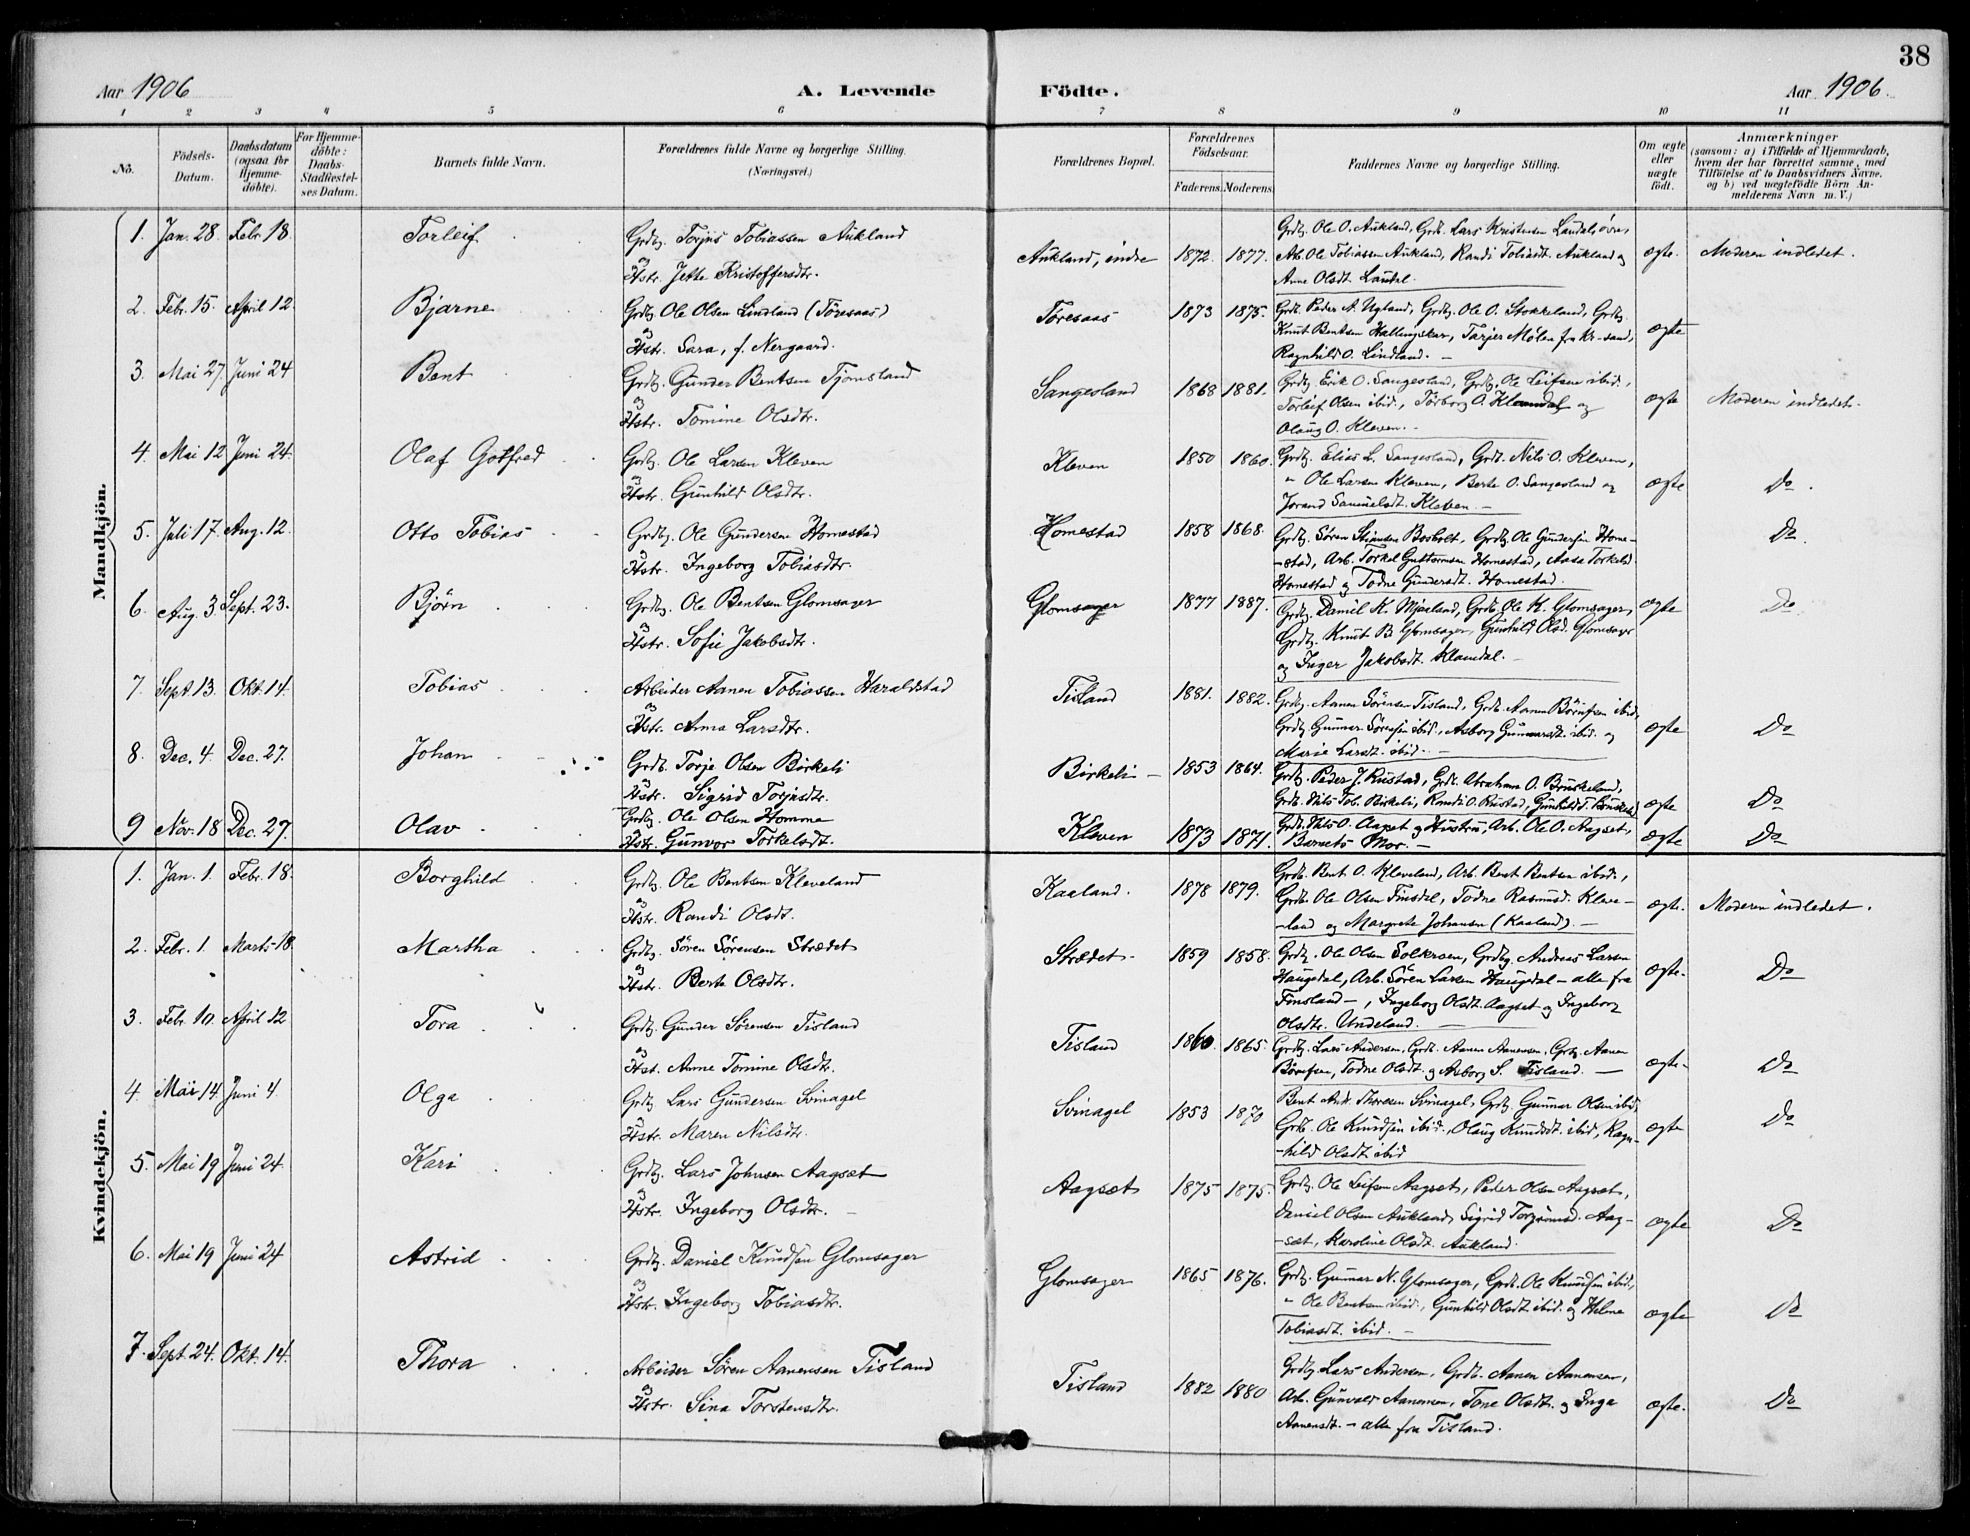 38
Aar 1906 A. Levende Födte. Aar 1906.
1 2 3 4 5 6 7 8 9 10 11
No. Födsels-Datum. Daabsdatum (ogsaa for Hjemmedöbte). For Hjemmedöbte: Daabs-Stadfæstelses Datum. Barnets fulde Navn. Forældrenes fulde Navne og borgerlige Stilling. (Næringsvei.) Forældrenes Bopæl. Forældrenes Födselsaar. Faderens. Moderens. Faddernes Navne og borgerlige Stilling. Om ægte eller uægte födt. Anmærkninger (saasom: a) i Tilfælde af Hjemmedaab, hvem der har forrettet samme, med Tilföielse af to Daabsvidners Navne. og b) ved uægtefödte Börn Anmelderens Navn m. V.)
Mandkjön.
1. Jan. 28. Febr. 18. Torleif Grdbg. Torjus Tobiassen Aukland
og Hstr. Jette Kristoffersdtr. Aukland, indre 1872 1877. ægte. Moderen indledet.
Grdbg. Ole O. Aukland, Grdb. Lars Kristensen
Arb. Ole Tobiassen Aukland, Randi Tobiasdt. Aukland og
Anne Olsdt. Laudal.
2. Febr. 15. April 12. Bjarne Grdbg. Ole Olsen Lindland (Töresaas)
og Hstr. Sara, f. Nergaard. Töresaas 1873 1875. ægte
Grdb. Peder A. Ugland, Grdbg. Ole O. Stokkeland, Grdbg.
Knut Bentsen Hallingskar, Tarjer Mölen fra Kr-sand,
Ragnhild O. Lindland. -
3. Mai 27. Juni 24 Bent Grdbg. Gunder Bentsen Tjomsland
og Hstr. Tomine Olsdtr. Sangesland 1868 1881. ægte Moderen indledet.
Grdbg. Erik O. Sangesland, Grdbg. Ole Leifsen ibid.,
Torleif Olsen ibid., Torborg O. Klemdal og
Olaug O. Kleven. -
4. Mai 12. Juni 24. Olaf Gotfred Grdbg. Ole Larsen Kleven
og Hstr. Gunhild Olsdtr. Kleven 1850 1860. ægte Do.
Grdbg. Elias L. Sangesland, Grdb. Nils O. Kleven,
" Ole Larsen Kleven, Berte O. Sangesland og
Jorand Samuelsdt. Kleven. -
5. Juli 17. Aug. 12. Otto Tobias Grdbg. Ole Gundersen Homestad
og Hstr. Ingeborg Tobiasdtr. Homestad 1858 1868. Do.
Grdbg. Sören Stiansen Bosholt, Grdbg. Ole Gundersen Home-
-stad, Arb. Torkel Guttormsen Homestad, Aasa Torkelsd.
Homestad og Todne Gundersdt. Homestad.
6. Aug. 3. Sept. 23. Björn Grdbg. Ole Bentsen Glomsager
og Hstr. Sofie Jakobsdtr. Glomsager 1877 1887. ægte Do.
Grdbg. Daniel K. Mjaaland, Grdb. Ole K. Glomsager,
Grdbg. Knut B. Glomsager, Gunhild Olsd. Glomsager
og Inger Jakobsdt. Klemdal. -
7. Sept. 13. Okt. 14. Tobias Arbeider Aanen Tobiassen Haraldstad
og Hstr. Anna Larsdtr. Tisland 1881. 1882. ægte Do
Grdbg. Aanen Sörensen Tisland, Grdb. Aanen Börufsen ibid,
Grdbg. Gunnar Sörensen ibid., Asborg Gunnarsdt. ibid. og
Marie Larsdt. ibid. -
8. Dec. 4. Dec. 27. Johan Grdb. Torje Olsen Birkeli
og Hstr. Sigrid Torjusdtr. Birkeli 1853 1864. ægte Do
Grdbg. Peder J. Rustad, Grdb. Abraham O. Bruskeland,
Grdb. Nils Tob. Birkeli, Randi O. Rustad, Gunhild T. Bruskeland
9 Nov. 18 Dec. 27. Olav Grdbg. Ole Olsen Homme
Hstr. Gunvor Torkelsdt. Kleven 1873 1871. ægte Do
Grdb. Nils O. Aagset og Hustru, Arb. Ole O. Aagset,
Barnets Mor. -
Kvindekjön.
1. Jan. 1. Febr. 18. Borghild Grdbg. Ole Bentsen Kleveland
og Hstr. Randi Olsdt. Kaaland. 1878 1879. ægte. Moderen indledet.
Grdb. Bent O. Kleveland, Arb. Bent Bentsen ibid.,
Grdb. Ole Olsen Finsdal, Todne Rasmusd. Kleve-
-land og Margrete Johansen (Kaaland). -
2. Febr. 1. Marts 18. Martha Grdbg. Sören Sörensen Strædet
og Hstr. Berte Olsdtr. Strædet 1859 1858. ægte. Do
Grdbg. Ole Olsen Solkroen, Grdbg. Andreas Larsen
Haugedal, Arb. Sören Larsen Haugedal - alle fra
Finsland -, Ingeborg Olsdt. Aagset og Ingeborg
Olsdtr. Undeland. -
3. Febr. 10. April 12 Tora Grdbg. Gunder Sörensen Tisland
og Hst. Anne Tomine Olsdtr. Tisland 1860. 1865. ægte. Do
Grdbg. Lars Andersen, Grdb. Aanen Aanensen, Grbg. Aanen
Börufsen, Todne Olsdt. og Asborg S. Tisland. -
4. Mai 14 Juni 4. Olga Grdbg. Lars Gundersen Svinagel
og Hstr. Maren Nilsdtr. Svinagel 1853 1870 ægte Do
Bent Ank. Thoresen Svinagel, Grdbg. Gunnar Olsen ibid,
Grdb. Ole Knudsen ibid., Olaug Knudsdt. ibid, Ragn-
-hild Olsdt. ibid
5. Mai 19 Juni 24. Kari Grdbg. Lars Johnsen Aagset
og Hstr. Ingeborg Olsdtr. Aagset 1875 1875. ægte Do
Grdbg. Ole Leifsen Aagset, Peder Olsen Aagset,
Daniel Olsen Aukland, Sigrid Torgrimsd. Aag-
-set, Karoline Olsdt. Aukland.
6. Mai 19 Juni 24 Astrid Grdbg. Daniel Knudsen Glomsager
og Hstr. Ingeborg Tobiasdtr. Glomsager 1865 1876. ægte Do
Grdbg. Gunnar N. Glomsager, Grdb. Ole Knudsen ibid.,
" Ole Bentsen ibid., Gunhild Olsdt. ibid. og Helene
Tobiasdt. ibid. -
7. Sept. 24. Okt. 14. Thora Arbeider Sören Aanensen Tisland
og Hstr. Sina Torstensdtr. Tisland 1882 1880 ægte. Do
Grdbg. Lars Andersen, Grdb. Aanen Aanensen,
Arb. Gunvald Aanensen, Tone Olsdt. og Inga
Aanensdt. - alle fra Tisland.